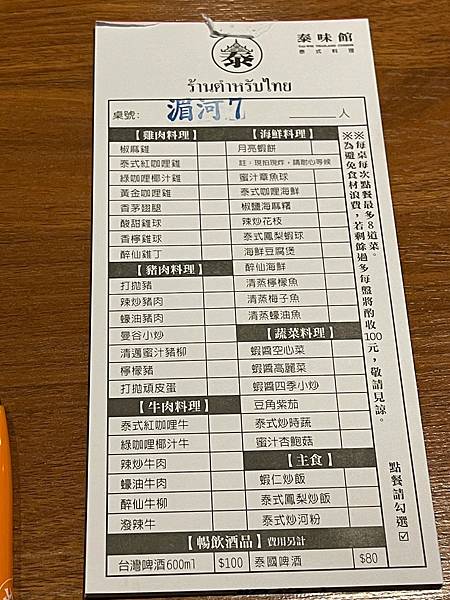 泰
泰味館
泰式料理
ร้านตำหรับไทย
桌號: 湄河7 人
【雞肉料理】
椒麻雞
泰式紅咖哩雞
綠咖哩椰汁雞
黃金咖哩雞
香茅翅腿
酸甜雞球
香檸雞球
醉仙雞丁
【豬肉料理】
打拋豬
辣炒豬肉
蠔油豬肉
曼谷小炒
清邁蜜汁豬柳
檸檬豬
打拋頑皮蛋
【牛肉料理】
泰式紅咖哩牛
綠咖哩椰汁牛
辣炒牛肉
蠔油牛肉
醉仙牛柳
潑辣牛
【海鮮料理】
月亮蝦餅
註:現拍現炸,請耐心等候
蜜汁章魚球
泰式咖哩海鮮
椒鹽海麻糬
辣炒花枝
泰式鳳梨蝦球
海鮮豆腐煲
醉仙海鮮
清蒸檸檬魚
清蒸梅子魚
清蒸蠔油魚
【蔬菜料理】
蝦醬空心菜
蝦醬高麗菜
蝦醬四季小炒
豆角紫茄
泰式炒時蔬
蜜汁杏鮑菇
【主食】
蝦仁炒飯
泰式鳳梨炒飯
泰式炒河粉
【暢飲酒品】費用另計
台灣啤酒600ml $100 泰國啤酒 $80
※每桌每次點餐最多8道菜。
※為避免食材浪費,若剩餘過多每盤將酌收100元,敬請見諒。
點餐請勾選☑